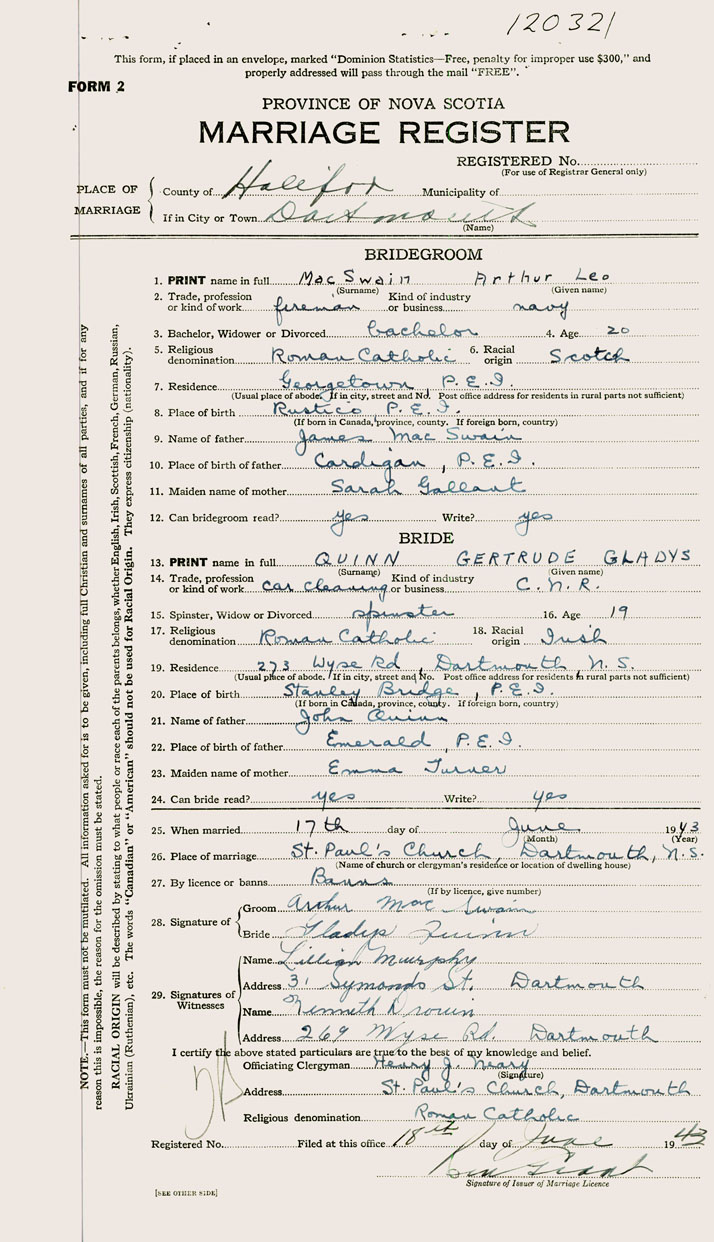 120321
This form, if placed in an envelope, marked "Dominion Statistics—Free, penalty for improper use $300," and
properly addressed will pass through the mail "FREE".
FORM 2
PROVINCE OF NOVA SCOTIA
MARRIAGE REGISTER
REGISTERED No.
(For use of Registrar General only)
PLACE OF MARRIAGE
County of Halifax Municipality of
If in City or Town Dartmouth
(Name)
BRIDEGROOM
1. PRINT name in full MacSwain Arthur Leo
(Surname) (Given name)
2. Trade, profession or kind of work fireman Kind of industry or business navy
3. Bachelor, Widower or Divorced bachelor 4. Age 20
5. Religious denomination Roman Catholic 6. Racial origin Scotch
7. Residence Georgetown, P.E.I.
(Usual place of abode. If in city, street and No. Post office address for residents in rural parts not sufficient)
8. Place of birth Rustico P.E.I.
(If born in Canada, province, county. If foreign born, country)
9. Name of father James MacSwain
10. Place of birth of father Cardigan, P.E.I.
11. Maiden name of mother Sarah Gallant
12. Can bridegroom read? yes Write? yes
BRIDE
13. PRINT name in full QUINN GERTRUDE GLADYS
(Surname) (Given name)
14. Trade, profession or kind of work car cleaning Kind of industry or business C.N.R.
15. Spinster, Widow or Divorced spinster 16. Age 19
17. Religious denomination Roman Catholic 18. Racial origin Irish
19. Residence 273 Wyse Rd, Dartmouth, N.S.
(Usual place of abode. If in city, street and No. Post office address for residents in rural parts not sufficient)
20. Place of birth Stanley Bridge, P.E.I.
(If born in Canada, province, county. If foreign born, country)
21. Name of father John Quinn
22. Place of birth of father Emerald, P.E.I.
23. Maiden name of mother Emma Turner
24. Can bride read? yes Write? yes
25. When married 17th day of June 1943
(Month) (Year)
26. Place of marriage St. Paul's Church, Dartmouth, N.S.
(Name of church or clergyman's residence or location of dwelling house)
27. By licence or banns Banns
(If by licence, give number)
28. Signature of
Groom Arthur MacSwain
Bride Gladys Quinn
29. Signatures of Witnesses
Name Lillian Murphy
Address 31 Symonds St. Dartmouth
Name Kenneth
Address 269 Wyse Rd. Dartmouth
I certify the above stated particulars are true to the best of my knowledge and belief.
Officiating Clergyman Henry J. Neary
(Signature)
Address St. Paul's Church, Dartmouth
Religious denomination Roman Catholic
Registered No. Filed at this office 18th day of June 1943
Signature of Issuer of Marriage Licence
[SEE OTHER SIDE]
NOTE.—This form must not be mutilated. All information asked for is to be given, including full Christian and surnames of all parties, and if for any
reason this is impossible, the reason for the omission must be stated.
RACIAL ORIGIN will be described by stating to what people or race each of the parents belongs, whether English, Irish, Scottish, French, German, Russian,
Ukrainian (Ruthenian), etc. The words "Canadian" or "American" should not be used for Racial Origin. They express citizenship (nationality).